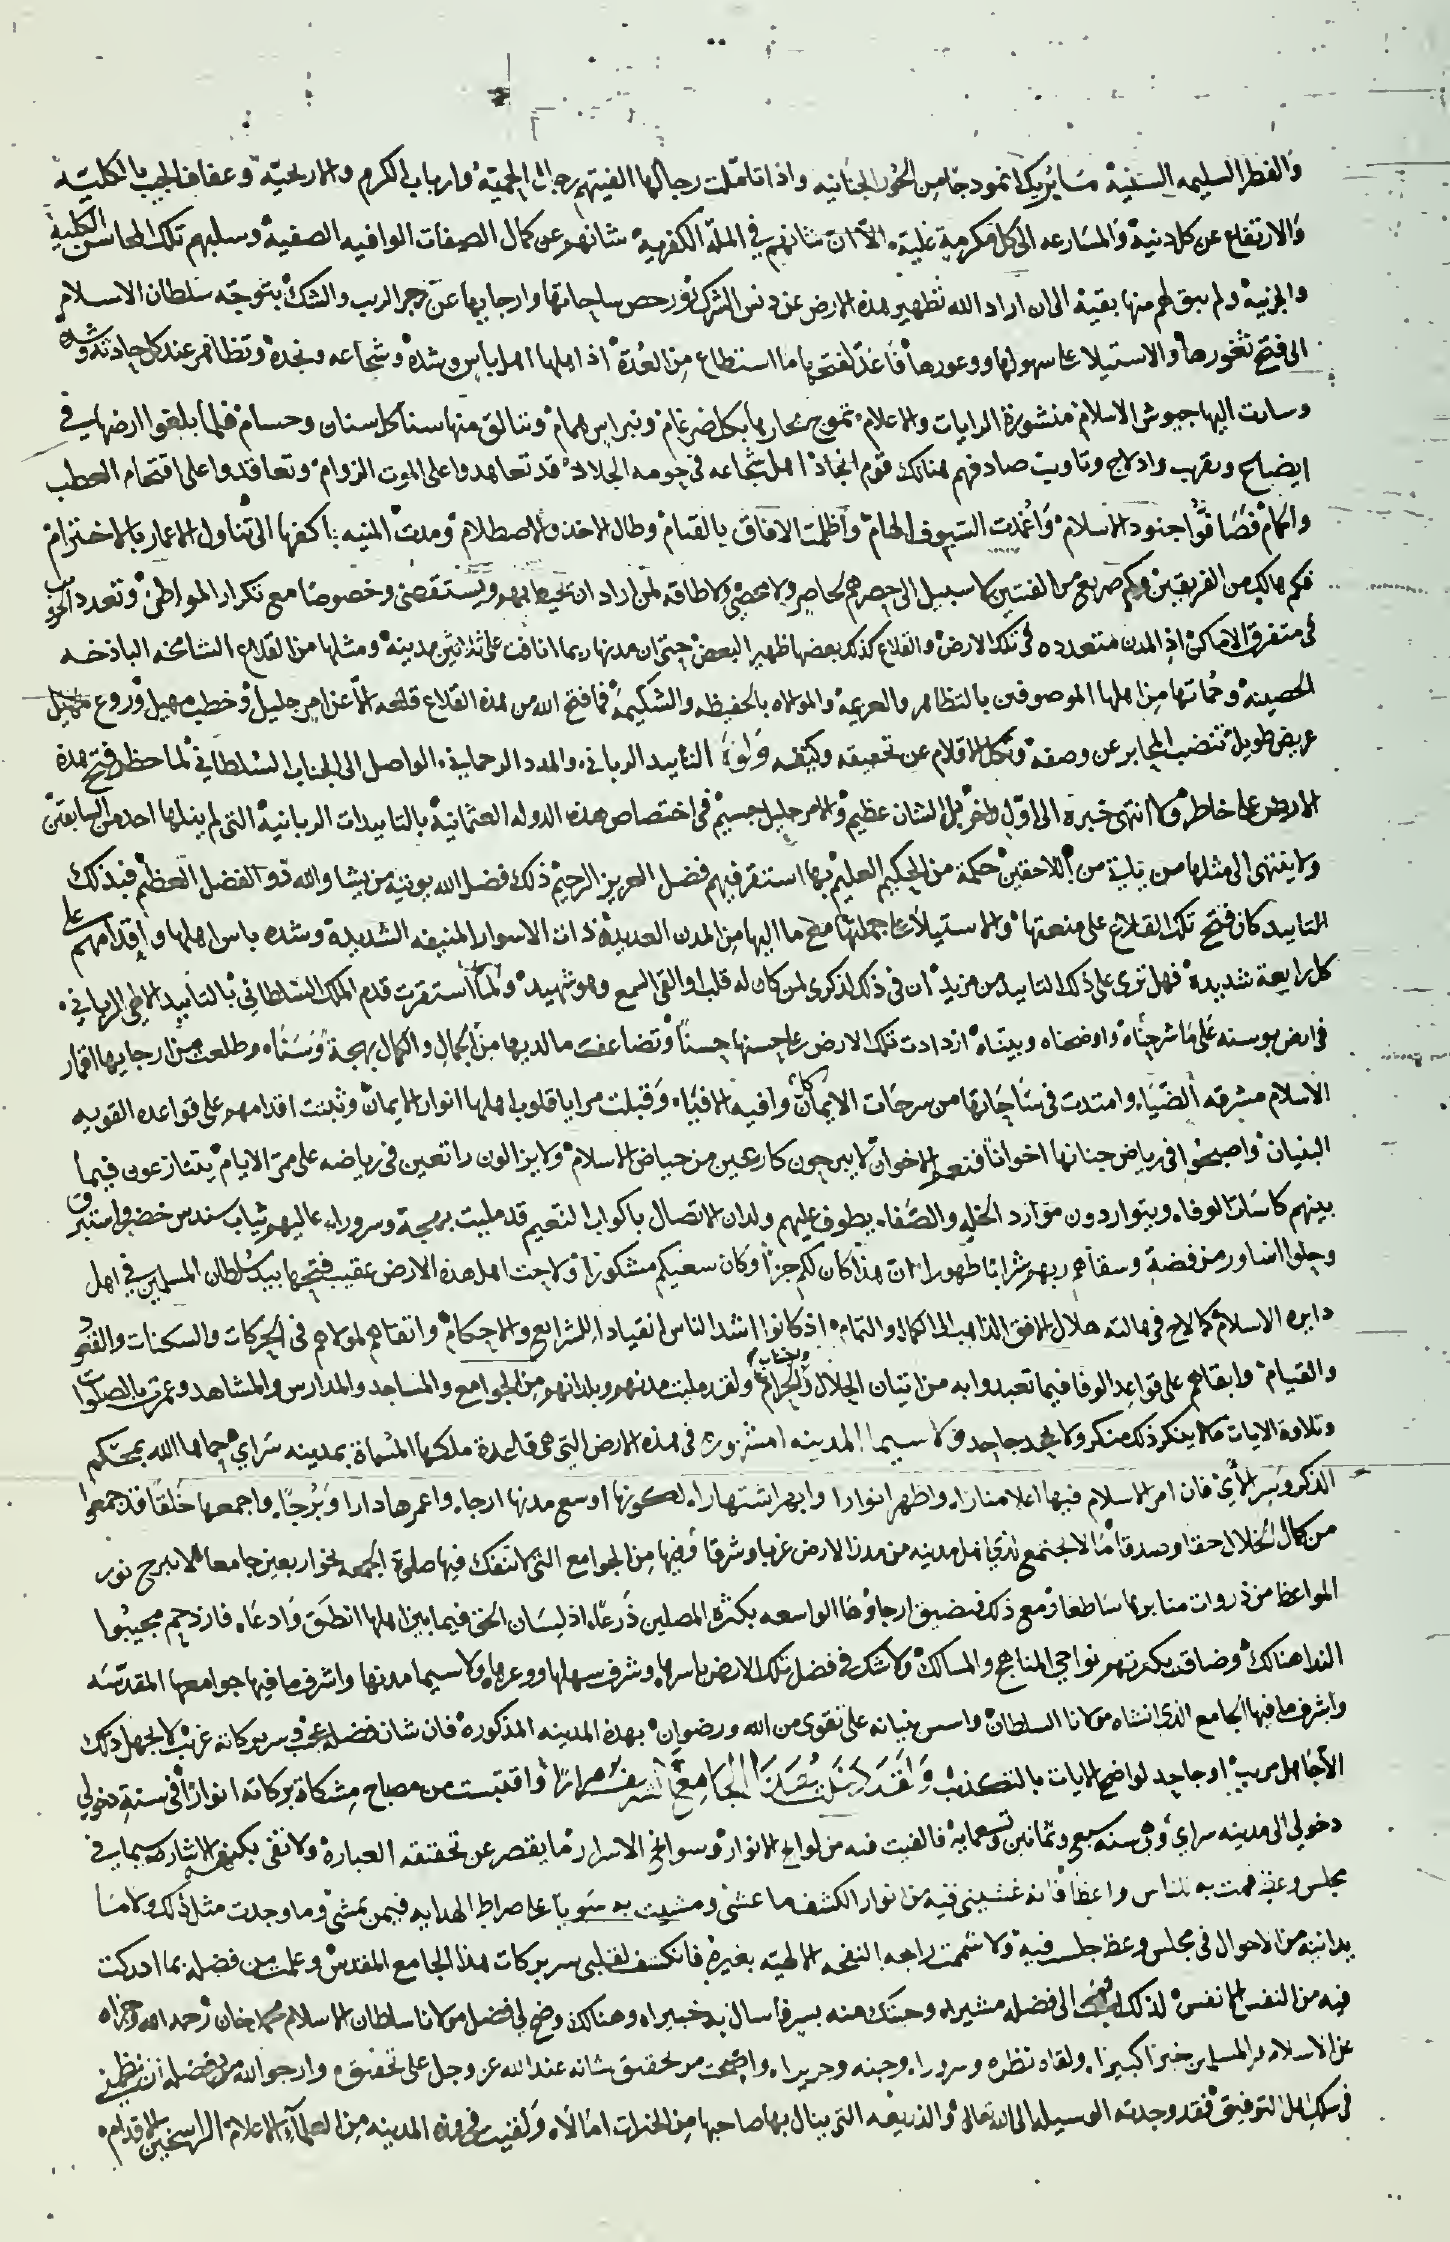 والفطر السليمه السنية ما يريك انموذجا من الحور الجنانيه واذا تاملت رجالها الفيتهم رجال الحمية وارباب الكرم والاريحية وعفاف الجيب بالكلية
والارتفاع عن كل دنية والمسارعه الى كل مكرمة علية الا ان شانهم في الملة الكفرية شانهم عن كمال الصفات الوافيه الصفية وسلبهم تلك المحاسن الكلية
والجزية ولم يبق لهم منها بقية الى ان اراد الله تطهير هذه الارض عن دنس الشرك ورحض ساحاتها وارجايها عن رجز الريب والشك بتوجه سلطان الاسلام
الى فتح ثغورها والاستيلا على سهولها ووعورها فاعد لفتحها ما استطاع من العدة اذ اهلها اهل باس وشدة وشجاعه ونجدة وتظاهر عند كل حادثه وشده
وسارت اليها جيوش الاسلام منشورة الرايات والاعلام تموج بحارها بكل ضرغام ونبراس همام وتتالق منها سنا كل سنان وحسام فلما بلغوا ارضها في
ايضاح وتقريب وادلاج وتاويب صادفهم هنالك قوم انجاد اهل شجاعه في حومه الجلاد قد تعاهدوا على الموت الزوام وتعاقدوا على اقتحام العطب
والحمام فصافوا جنود الاسلام واغمدت السيوف الهام واظلمت الافاق بالقتام وطال الاخذ والاصطلام ومدت المنيه اكفها الى تناول الاعمار بالاخترام
فكم هالك من الفريقين وكم صريع من الفئتين لا سبيل الى حصرهم لحاصر ولا محصي ولا طاقه لمن اراد ان يحيط بهم ويستقصى وخصوصا مع تكرار المواطن وتعدد الحروب
في متفرق الاماكن اذ المدن متعدده في تلك الارض والقلاع كذلك بعضها ظهير البعض حتى ان مدنها ربما انافت على ثلاثين مدينة ومثلها من القلاع الشامخه الباذخه
الحصينة وحماتها من اهلها الموصوفين بالتظاهر والعزيمه والموالاه بالحفيظه والشكيمة فما فتح الله من هذه القلاع قلعه الا عن امر جليل وخطب مهيل وروع مهيل
عريض طويل تنضب المحابر عن وصفه وتكل الاقلام عن تحقيقه وكيفه ولولا التاييد الرباني والمدد الرحماني الواصل الى الجناب السلطاني لما خطر فتح هذه
الارض على خاطر ولا انتهى خبره الى اول ولا اخر بل الشان عظيم والامر جليل جسيم في اختصاص هذه الدوله العثمانية بالتاييدات الربانية التي لم ينلها احد من السابقين
ولا ينتهى الى مثلها من يليه من اللاحقين حكمة من الحكيم العليم بما استقر فيهم فضل العزيز الرحيم ذلك فضل الله يوتيه من يشا والله ذو الفضل العظيم فبذلك
التاييد كان فتح تلك القلاع على منعتها والاستيلا على جملتها مع ما اليها من المدن العديدة ذات الاسوار المنيفه الشديدة وشده باس اهلها واقدامهم على
كل رايعة شديدة فهل ترى على ذلك التاييد من مزيد ان في ذلك لذكرى لمن كان له قلب او القى السمع وهو شهيد ولما استقرت قدم الملك السلطاني بالتاييد الالهي الرباني
في ارض بوسنه على ما شرحناه واوضحناه وبيناه ازدادت تلك الارض على حسنها حسنا وتضاعفت ما لديها من الجمال والكمال بهجة وسناء وطلعت من ارجايها اقمار
الاسلام مشرقه الضياء وامتدت في ساحاتها من سرحات الايمان وافيه الافياء وقبلت مرايا قلوب اهلها انوار الايمان وثبتت اقدامهم على قواعده القويه
البنيان واصبحوا في رياض جنانها اخوانا فنعم الاخوان لا يبرحون كارعين من حياض الاسلام ولا يزالون راتعين في رياضه على ممر الايام يتنازعون فيما
بينهم كاسات الوفاء ويتواردون موارد الخله والصفاء يطوف عليهم ولدان الاتصال باكواب النعيم قد مليت بهجة وسرورا عاليهم ثياب سندس خضر واستبرق
وحلوا اساور من فضة وسقاهم ربهم شرابا طهورا ان هذا كان لكم جزاء وكان سعيكم مشكورا ولاحت اهل هذه الارض عقيب فتحها بيد سلطان المسلمين في اهل
دايره الاسلام كما لاح في هالته هلال الافق الذاهب الى الكمال والتمام اذ كانوا اشد الناس انقيادا للشرايع والاحكام واتقاهم لمولاهم في الحركات والسكنات والقعود
والقيام وابقاهم على قواعد الوفا فيما تعبدوا به من اتيان الحلال واجتناب الحرام ولقد مليت مدنهم وبلدانهم من الجوامع والمساجد والمدارس والمشاهد وعمرت بالصلوات
وتلاوة الايات ما لا ينكر ذلك منكر ولا يجحد جاحد ولا سيما المدينه المشهوره في هذه الارض التي هي قاعدة ملكها المسماة بمدينه سراي حماها الله بمحكم
الذكر وسر الآي فان امر الاسلام فيها اعلا منارا واظهر انوارا وابهر اشتهارا لكونها اوسع مدنها ارجاء واعمرها دارا وبرجا واجمعها خلقا قد جمعوا
من كمال الخلال حقا وصدقا ما لا يجتمع لذي اهل مدينه من مدن الارض غربا وشرقا فيها من الجوامع التي لا تنفك فيها صلوة الجمعه نحو اربعين جامعا لا يبرح نور
المواعظ من ذروات منابرها ساطعا ومع ذلك فتضيق ارجاوها الواسعه بكثرة المصلين ذرعا اذ لسان الحق فيما بين اهلها انطق وادعاء فازدحم مجيبوا
الندا هنالك وضاقت بكثرتهم نواحي المناهج والمسالك ولا شك في فضل تلك الارض باسرها وشرف سهلها ووعرها ولا سيما مدنها واشرف ما فيها جوامعها المقدسه
واشرف ما فيها الجامع الذي انشاه مولانا السلطان واسس بنيانه على تقوى من الله ورضوان بهذه المدينه المذكوره فان شان فضله عجيب وسر بركاته غريب لا يجهل ذلك
الا جاهل مريب او جاحد لواضح الايات بالتكذيب ولقد دخلت هذا الجامع الشريف مرارا واقتبست من مصباح مشكاة بركاته انوارا في سنة دخولي
دخولي الى مدينه سراي وهي سنه سبع وثمانين وتسعمايه فالفيت فيه من لوايح الانوار وسوانح الاسرار ما يقصر عن تحقيقه العبارة ولا تفى بكنهه الاشارة سيما في
مجلس وعظ قمت به للناس واعظا فانه غشيني فيه من انوار الكشف ما غشي ومشيت به سويا على صراط الهدايه فيمن تمشي وما وجدت مثل ذلك ولا ما
يدانيه من الاحوال في مجلس وعظ جلست فيه ولا شممت رايحه النفحه الالهيه بغيره فانكشف لقلبي سر بركات هذا الجامع المقدس وعلمت من فضله بما ادركت
فيه من النفس الانفس لذلك الى فضله مشيرا وحبتك منه بسر فاسال به خبيرا وهنالك وضح لي فضل مولانا سلطان الاسلام محمد خان رحمه الله وجزاه
عن الاسلام والمسلمين خيرا كبيرا ولقاه نظره وسرورا وجنه وحريرا واصبحت من تحقيق شانه عند الله عز وجل على تحقيق وارجو الله من فضله ان ينظمني
في سلك اهل التوفيق فقد وجدته الوسيله الى الله تعالى والذريعه التي ينال بها صاحبها من الخيرات امالا ولقيت في هذه المدينه من العلماء الاعلام الراسخين الاقدام